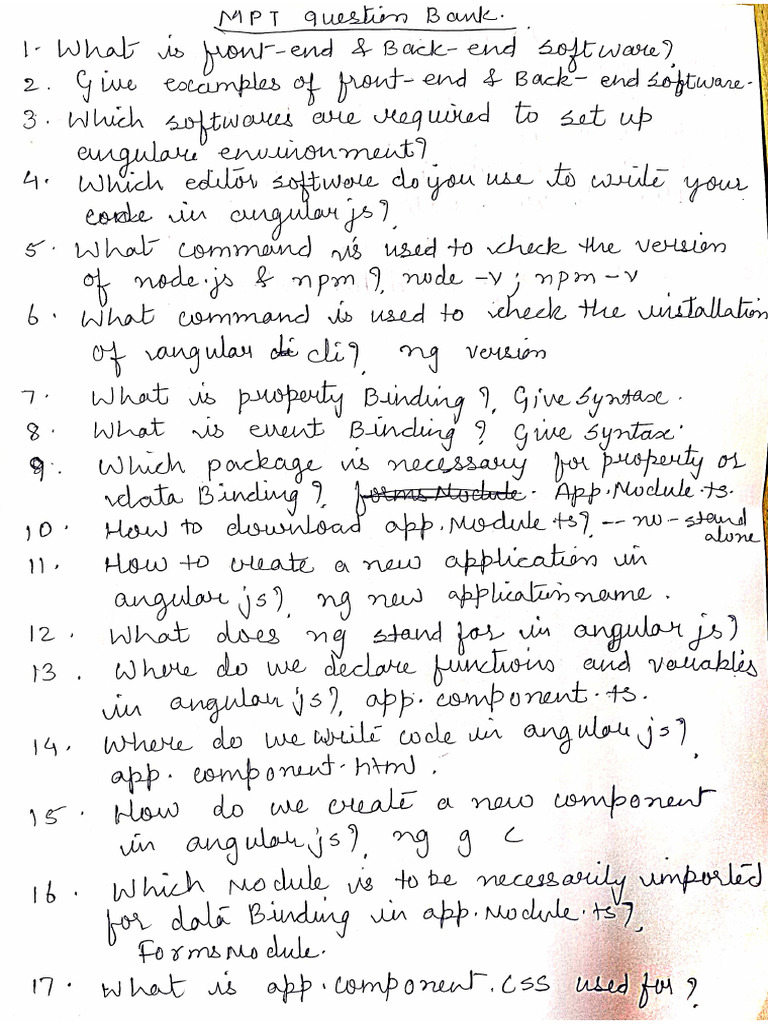 MPT Question Bank.
1. What is front-end & Back-end software?
2. Give examples of front-end & Back-end software.
3. Which softwares are required to set up
angulare environment?
4. Which editor software do you use to write your
code in angular js?
5. What command is used to check the version
of node.js & npm? node -v; npm -v
6. What command is used to check the installation
of angular cli? ng version
7. What is property Binding? Give Syntax.
8. What is event Binding? Give Syntax.
9. Which package is necessary for property or
data Binding? formsModule. App.Module.ts.
10. How to download app.Module.ts? --no-stand
alone
11. How to create a new application in
angular js? ng new applicationname.
12. What does ng stand for in angular js?
13. Where do we declare functions and variables
in angular js? app.component.ts.
14. Where do we write code in angular js?
app.component.html.
15. How do we create a new component
in angular js? ng g c
16. Which Module is to be necessarily imported
for data Binding in app.Module.ts?
FormsModule.
17. What is app.component.CSS used for?